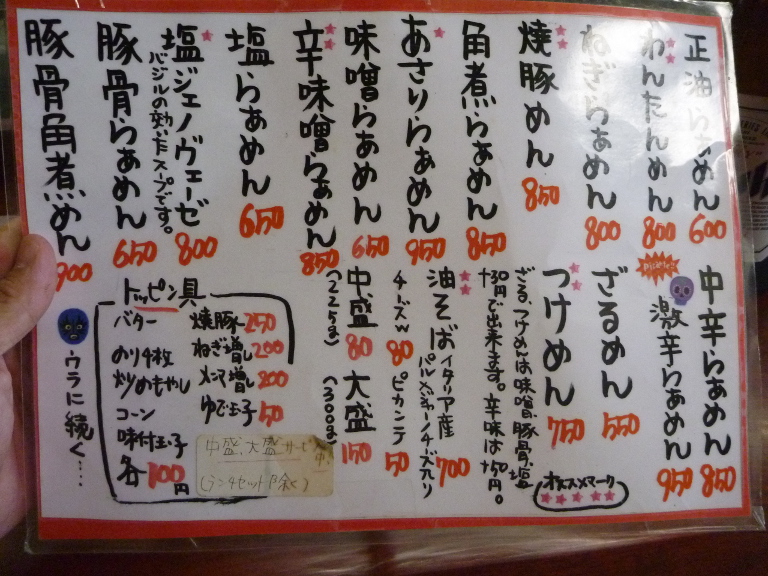 正油らぁめん 600
わんたんめん 800
ねぎらぁめん 800
焼豚めん 850
角煮らぁめん 850
あさりらぁめん 950
味噌らぁめん 650
辛味噌らぁめん 850
塩らぁめん 650
塩ジェノヴェーゼ 800
バジルの効いたスープです。
豚骨らぁめん 650
豚骨角煮めん 900
中辛らぁめん 850
激辛らぁめん 950
ざるめん 550
つけめん 750
ざる、つけめんは味噌、豚骨、塩
オススメマーク
油そば イタリア産
パルメジャーノチーズ入り 700
チーズW 80
ピカンテ 50
中盛 80
(225g)
大盛 150
(300g)
トッピン具
焼豚 250
ねぎ増し 200
メンマ増し 200
ゆで玉子 50
バター
のり4枚
炒めもやし
コーン
味付玉子
各100円
中盛、大盛サービス中
(ランチセット除く)
ウラに続く…